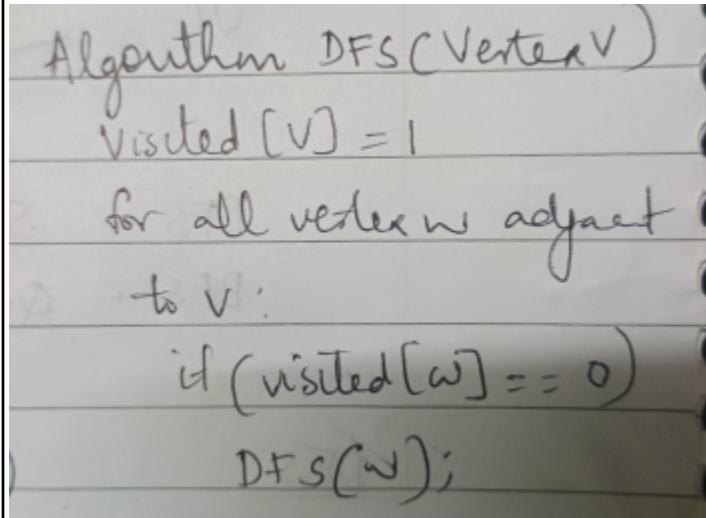 Algorithm DFS(Vertex V)
Visited [V] = 1
for all vertex w adjacent
to v :
if (visited[w] == 0)
DFS(w);